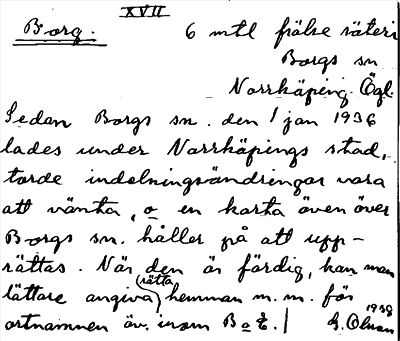 XVII
Borg. 6 mtl frälse säteri
Borgs sn
Norrköping. Ögl.
Sedan Borgs sn. den 1 jan 1936
lades under Norrköpings stad,
torde indelningsändringar vara
att vänta, o en karta även över
Borgs sn. håller på att upp-
rättas. När den är färdig, kan man
lättare angiva (rätta) hemman m.m. för
ortnamnen äv. inom B o E. | G. Olson
1938